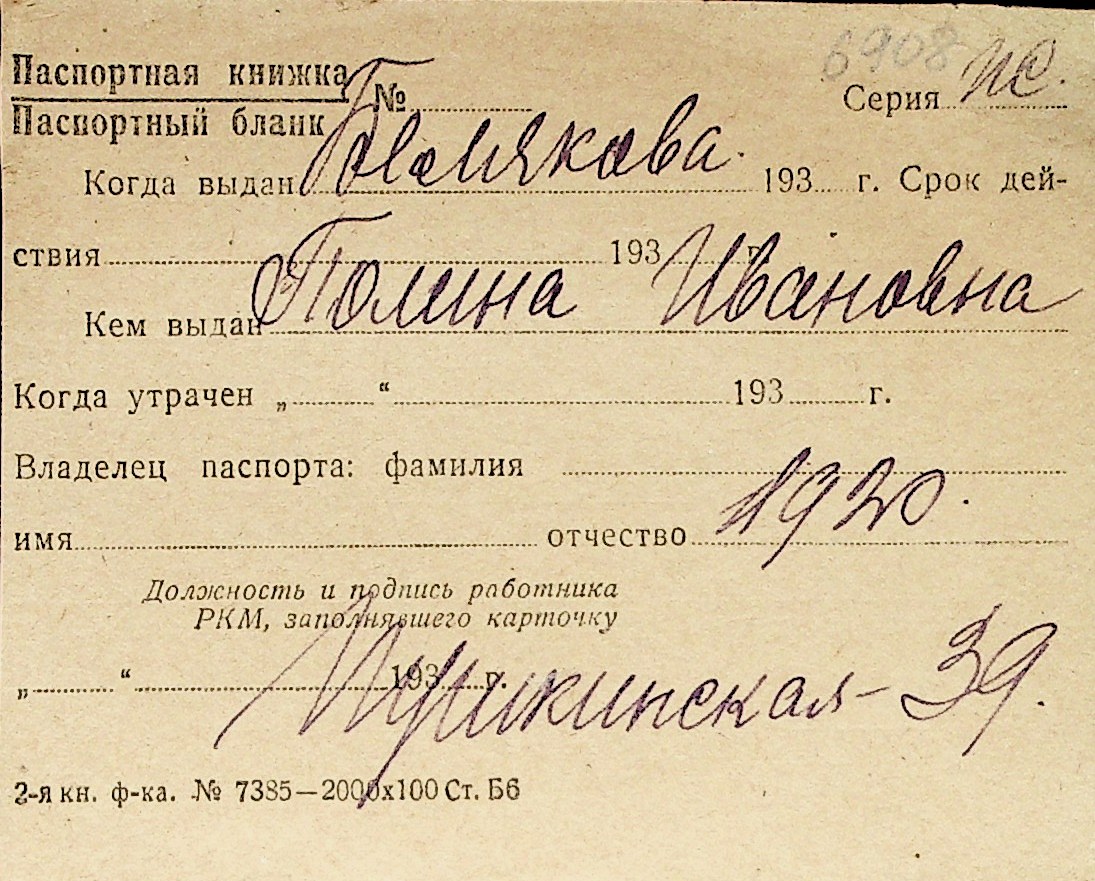 6908
Паспортная книжка
Паспортный бланк № Серия ПС.
Полякова.
Когда выдан 193 г. Срок дей-
ствия 193 г.
Полина Ивановна
Кем выдан
Когда утрачен „ “ 193 г.
Владелец паспорта: фамилия
1920.
имя отчество
Должность и подпись работника
РКМ, заполнявшего карточку
„ “ 193 г.
Пушкинская - 39.
2-я кн. ф-ка. № 7385—2000х100 Ст. Б6